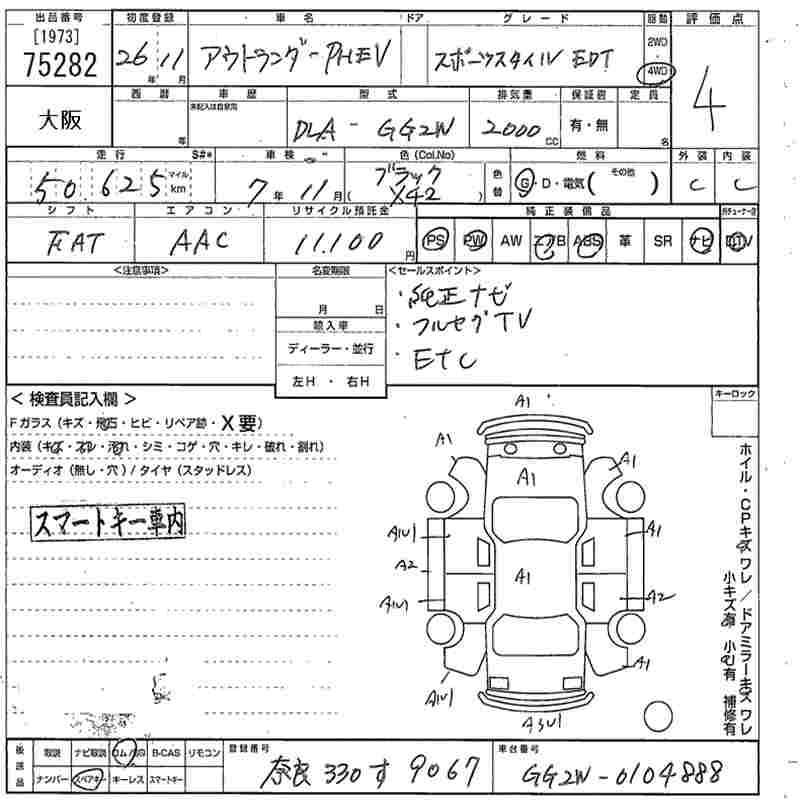 出品番号 初度登録 車名 ドア グレード 駆動 評価点
[1973]
75282 26年 11月 アウトランダーPHEV スポーツスタイル EDT 2WD 4WD 4
大阪 西暦 年 車歴 未記入は自家用 型式 排気量 保証書 定員
DLA - GG2W 2000cc 有・無 名
走行 S#* 車検 色(Col.No) 燃料 外装 内装
50,625 マイル km 7年 11月 ( ブラック X42 ) 色替 G・D・電気( その他 ) C C
シフト エアコン リサイクル預託金 純正装備品
FAT AAC 11,100円 PS PW AW エア/B ABS 革 SR ナビ TV
<注意事項> 名変期限 <セールスポイント>
月 日 ・純正ナビ
輸入車 ・フルセグTV
ディーラー・並行 ・ETC
左H ・ 右H
<検査員記入欄> キーロック
Fガラス(キズ・飛石・ヒビ・リペア跡・X要)
内装(キズ・スレ・汚れ・シミ・コゲ・穴・キレ・破れ・割れ)
オーディオ(無し・穴)/タイヤ(スタッドレス)
スマートキー車内
A1
A1 A1 A1
AU1 A1
A2 A1
AU1 A2
AU1 A1
A3U1
ホイル・CPキズ ワレ/ドアミラーキズ ワレ
小キズ有 小凹有 補修有
後送品 取説 ナビ取説 B-CAS リモコン 登録番号 車台番号
ナンバー スペアキー キーレス スマートキー 奈良 330 す 9067 GG2W-0104888